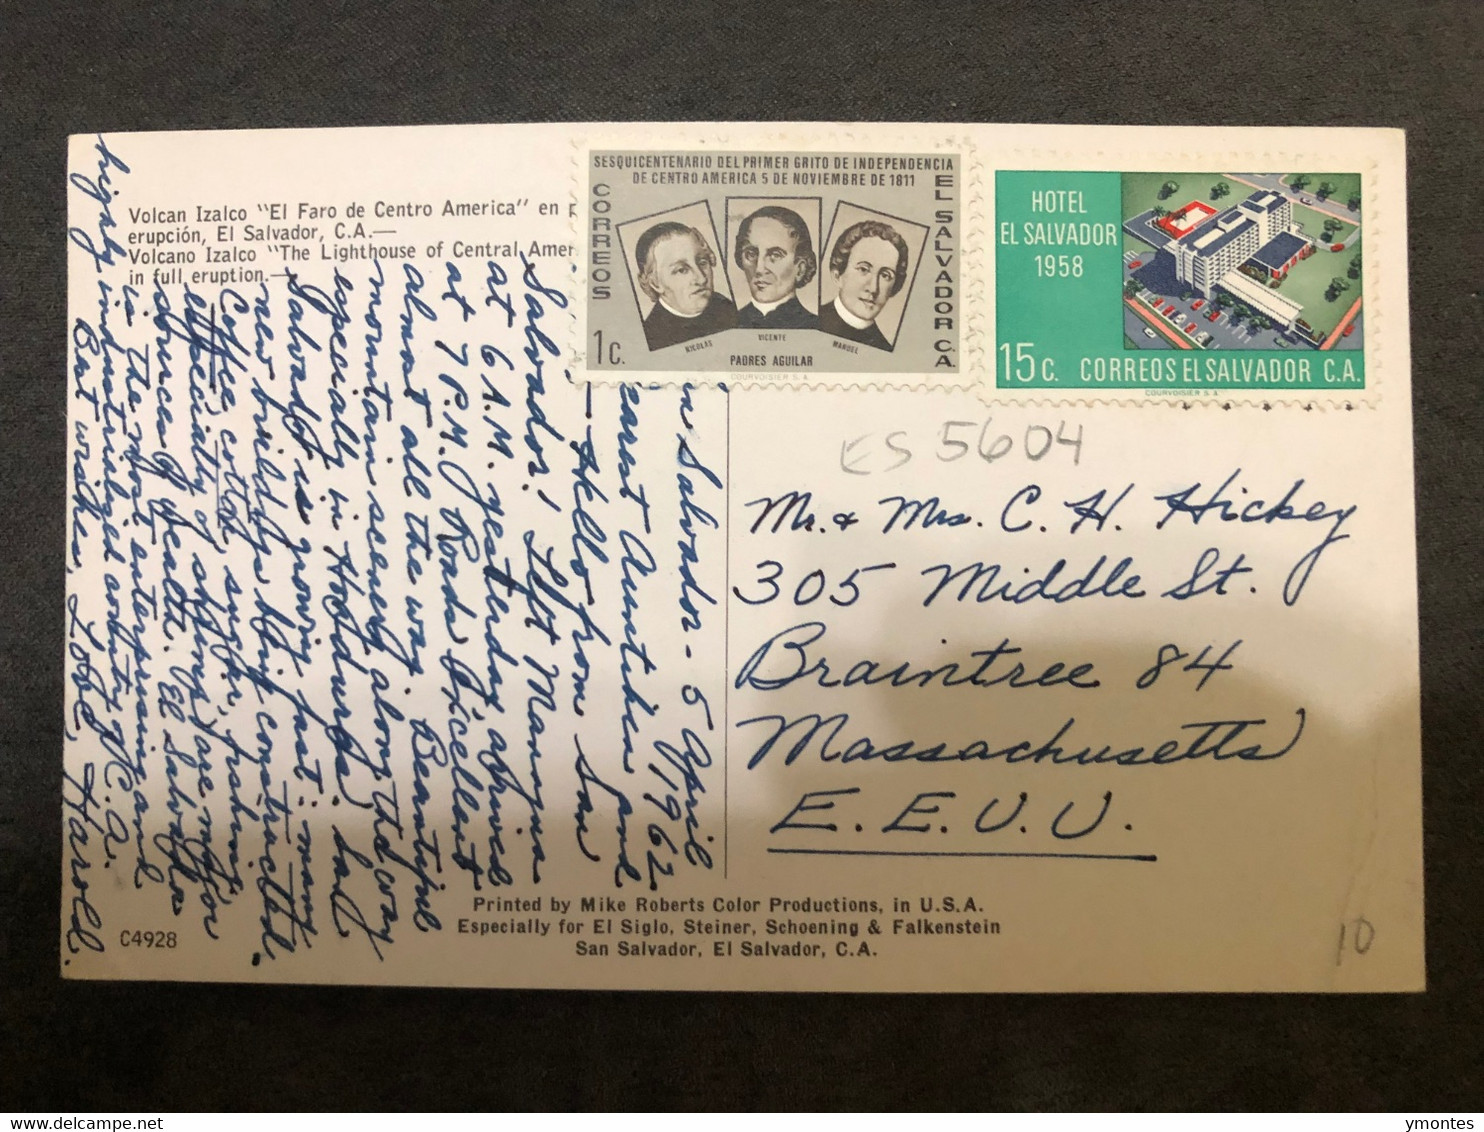 Volcan Izalco "El Faro de Centro America" en
erupción, El Salvador, C.A.—
Volcano Izalco "The Lighthouse of Central Amer
in full eruption.—
SESQUICENTENARIO DEL PRIMER GRITO DE INDEPENDENCIA
DE CENTRO AMERICA 5 DE NOVIEMBRE DE 1811
CORREOS
EL SALVADOR C.A.
NICOLAS
VICENTE
MANUEL
1 C.
PADRES AGUILAR
COURVOISIER S.A.
HOTEL
EL SALVADOR
1958
15 C. CORREOS EL SALVADOR C.A.
COURVOISIER S.A.
ES 5604
n Salvador - 5 April
1962
earest Auntihen and
— Hello from San
Salvador! Left Managua
at 6 A.M. yesterday arrived
at 7 P.M. Roads Excellent
almost all the way. Beautiful
mountain scenery along the way
especially in Honduras. San
Salvador is growing fast: many
new buildings being constructed.
Coffee, cotton, sugar, fishing,
(especially of shrimp) are major
sources of wealth. El Salvador
is the most enterprising and
highly industrialized country of C.A.
Best wishes, Love, Harold.
Mr. & Mrs. C. H. Hickey
305 Middle St.
Braintree 84
Massachusetts
E.E.U.U.
Printed by Mike Roberts Color Productions, in U.S.A.
Especially for El Siglo, Steiner, Schoening & Falkenstein
San Salvador, El Salvador, C.A.
C4928
10
delcampe.net
ymontes